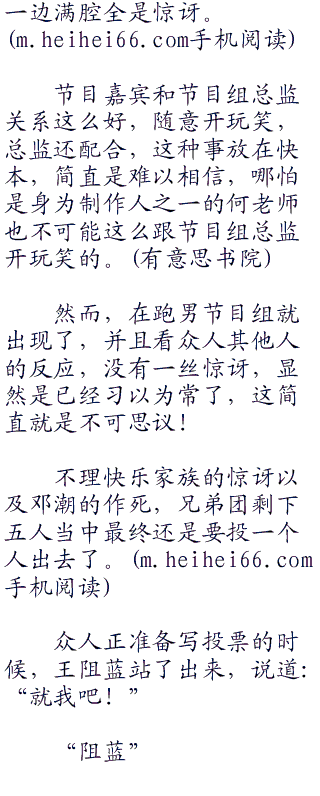 一边满腔全是惊讶。
(m.heihei66.com手机阅读)
节目嘉宾和节目组总监
关系这么好，随意开玩笑，
总监还配合，这种事放在快
本，简直是难以相信，哪怕
是身为制作人之一的何老师
也不可能这么跟节目组总监
开玩笑的。(有意思书院)
然而，在跑男节目组就
出现了，并且看众人其他人
的反应，没有一丝惊讶，显
然是已经习以为常了，这简
直就是不可思议！
不理快乐家族的惊讶以
及邓潮的作死，兄弟团剩下
五人当中最终还是要投一个
人出去了。(m.heihei66.com
手机阅读)
众人正准备写投票的时
候，王阻蓝站了出来，说道：
“就我吧！”
“阻蓝”